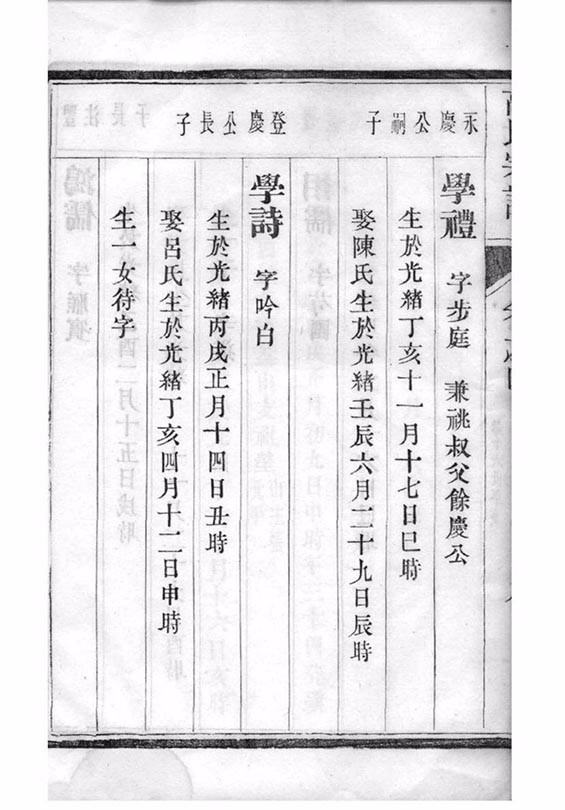 永慶公嗣子
學禮 字步庭 兼祧叔父餘慶公
生於光緒丁亥十一月十七日巳時
娶陳氏生於光緒壬辰六月二十九日辰時
登慶公長子
學詩 字吟白
生於光緒丙戌正月十四日丑時
娶呂氏生於光緒丁亥四月十二日申時
生一女待字